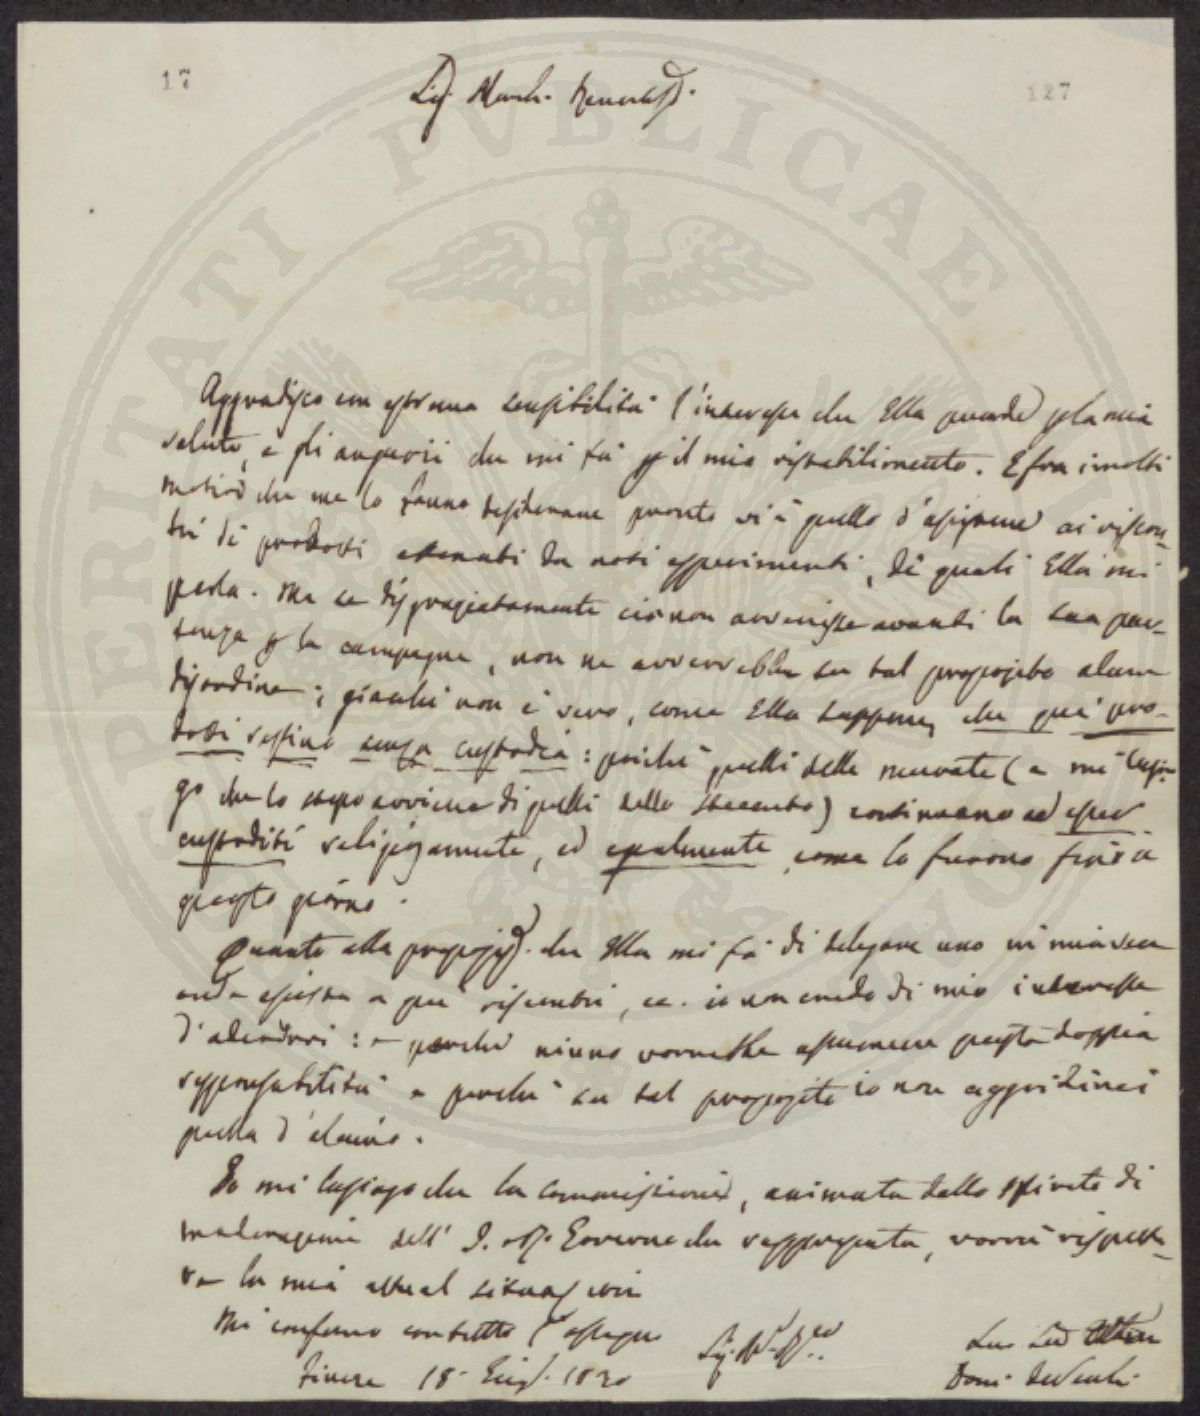 17
127
Sig. March.
Aggradisco con estrema sensibilità l'interesse che Ella prende p la mia
salute, e gli augurii che mi fà p il mio ristabilimento. E fra i molti
motivi che me lo fanno desiderare pronto vi è quello d'esigere ai riscon-
tri di prodotti ottenuti da noti esperimenti, di quali Ella mi
parla. Ma se disgraziatamente ciò non avvenisse avanti la sua par-
tenza p la campagna, non ne avverrebbe su tal proposito alcun
disordine; giacchè non è vero, come Ella suppone, che quei pro-
dotti restino senza custodia: poichè quelli delle (e mi lusin-
go che lo stesso avviene di quelli dello) continuano ad esser
custoditi religiosamente, ed egualmente come lo furono fino a
questo giorno.
Quanto alla proposiz. che Ella mi fà di delegare uno in mia vece
onde assista a quei riscontri, io non credo di mio interesse
d'aderirvi: e perchè niuno vorrebbe assumere questa doppia
responsabilità e perchè su tal proposito io non aggiudicai
quella d'alcuno.
Io mi lusingo che la commissione, animata dallo spirito di
moderazione dell' I. e R. Governo che rappresenta, vorrà rispetta-
re la mia attual situazione
Mi confermo con tutto l'ossequio
Firenze 18 Giug. 1830